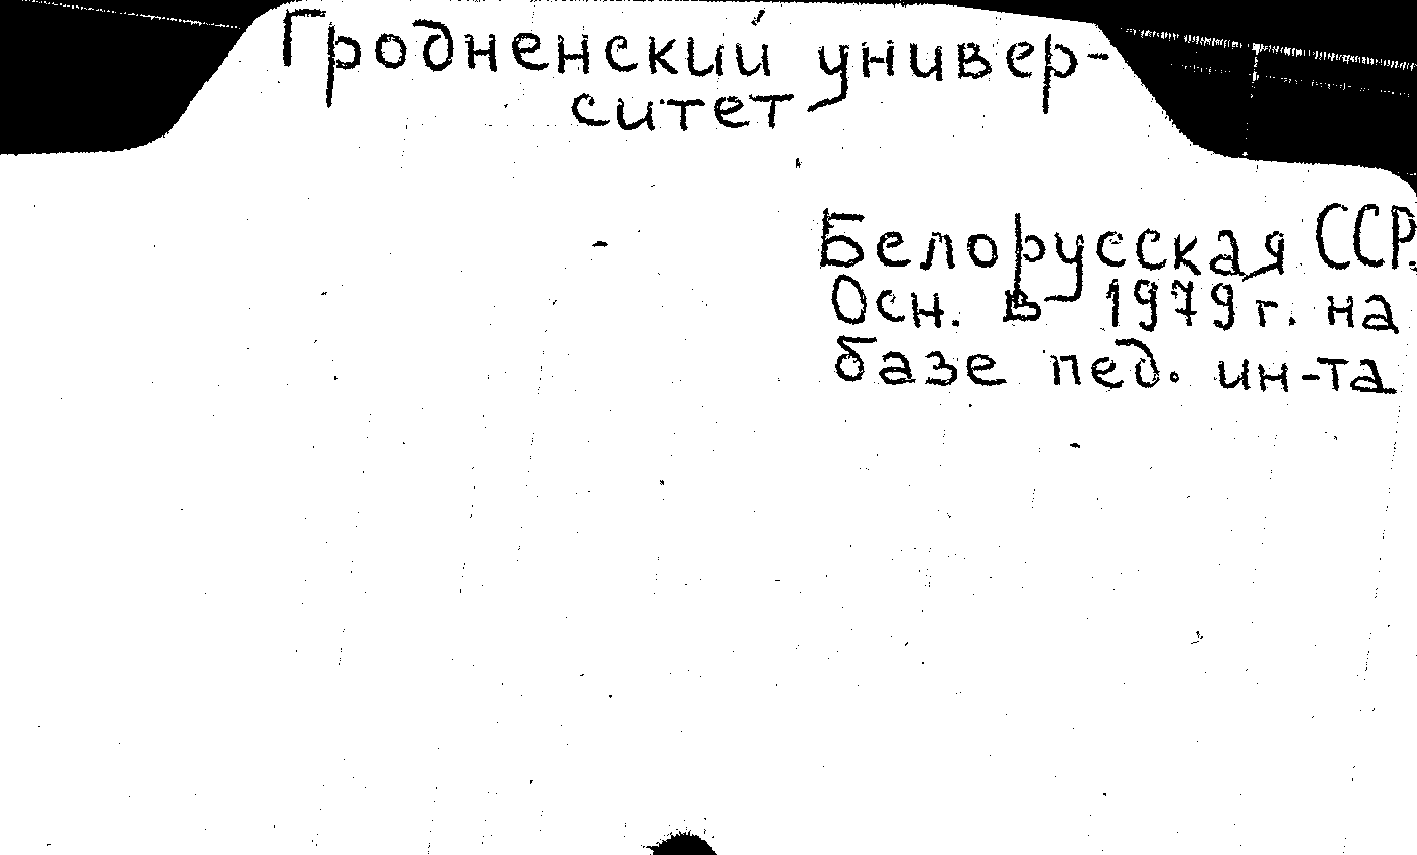 Гродненский универ-
ситет
Белорусская ССР.
Осн. в 1979 г. на
базе пед. ин-та